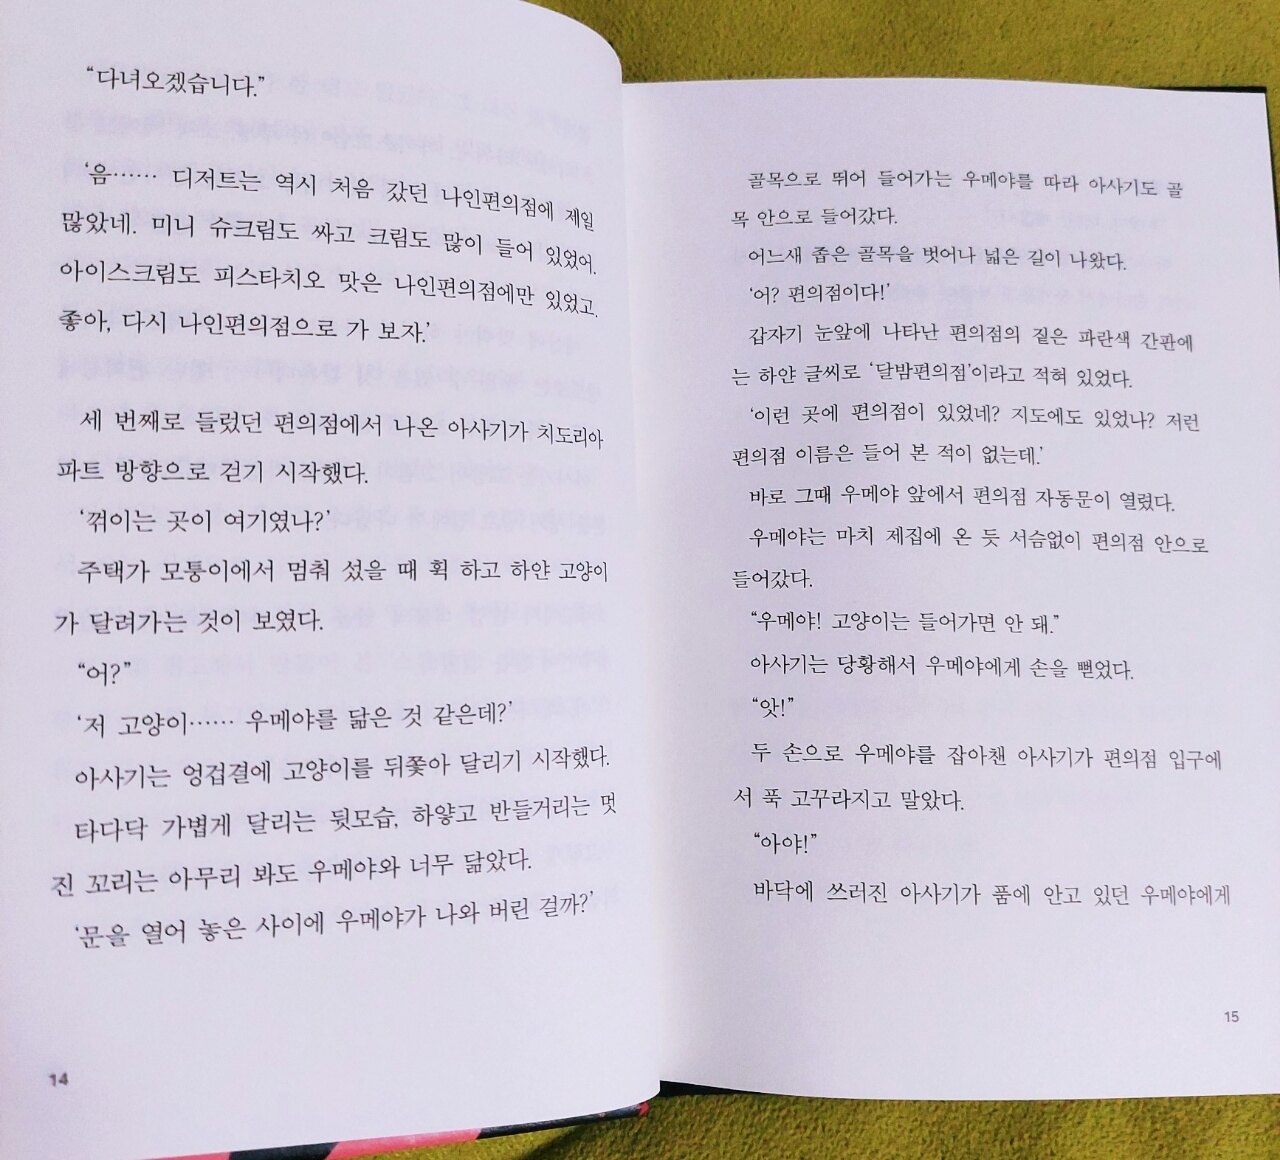 “다녀오겠습니다.”
‘음…… 디저트는 역시 처음 갔던 나인편의점에 제일
많았네. 미니 슈크림도 싸고 크림도 많이 들어 있었어.
아이스크림도 피스타치오 맛은 나인편의점에만 있었고.
좋아, 다시 나인편의점으로 가 보자.’
세 번째로 들렀던 편의점에서 나온 아사기가 치도리아
파트 방향으로 걷기 시작했다.
‘꺾이는 곳이 여기였나?’
주택가 모퉁이에서 멈춰 섰을 때 획 하고 하얀 고양이
가 달려가는 것이 보였다.
“어?”
‘저 고양이…… 우메야를 닮은 것 같은데?’
아사기는 엉겁결에 고양이를 뒤쫓아 달리기 시작했다.
타다닥 가볍게 달리는 뒷모습, 하얗고 반들거리는 멋
진 꼬리는 아무리 봐도 우메야와 너무 닮았다.
‘문을 열어 놓은 사이에 우메야가 나와 버린 걸까?’
14
골목으로 뛰어 들어가는 우메야를 따라 아사기도 골
목 안으로 들어갔다.
어느새 좁은 골목을 벗어나 넓은 길이 나왔다.
‘어? 편의점이다!’
갑자기 눈앞에 나타난 편의점의 짙은 파란색 간판에
는 하얀 글씨로 ‘달밤편의점’이라고 적혀 있었다.
‘이런 곳에 편의점이 있었네? 지도에도 있었나? 저런
편의점 이름은 들어 본 적이 없는데.’
바로 그때 우메야 앞에서 편의점 자동문이 열렸다.
우메야는 마치 제집에 온 듯 서슴없이 편의점 안으로
들어갔다.
“우메야! 고양이는 들어가면 안 돼.”
아사기는 당황해서 우메야에게 손을 뻗었다.
“앗!”
두 손으로 우메야를 잡아챈 아사기가 편의점 입구에
서 푹 고꾸라지고 말았다.
“아야!”
바닥에 쓰러진 아사기가 품에 안고 있던 우메야에게
15